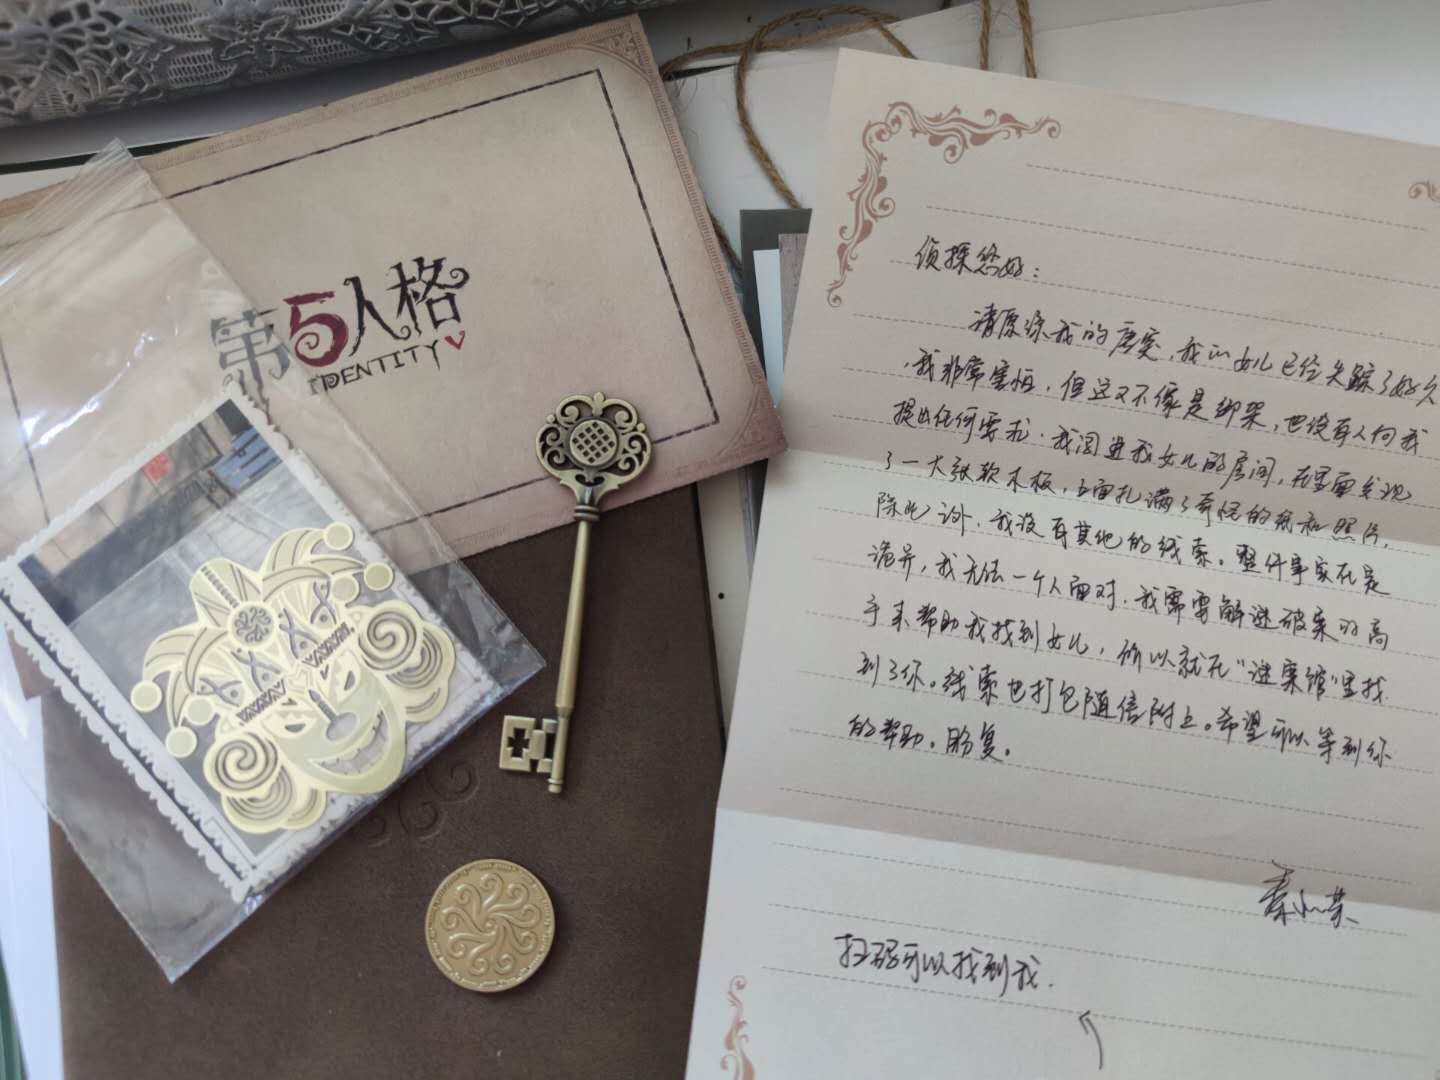 第5人格
IDENTITY V
侦探您好：
请原谅我的唐突，我的女儿已经失踪了好久
，我非常害怕，但这又不像是绑架，也没有人向我
提出任何要求。我闯进我女儿的房间，在里面发现
了一大张软木板，上面扎满了奇怪的纸和照片，
除此以外，我没有其他的线索。整件事实在是
诡异，我无法一个人面对，我需要解谜破案的高
手来帮助我找到女儿，所以就在“谜案馆”里找
到了你。线索也打包随信附上。希望可以等到你
的帮助。盼复。
扫码可以找到我.